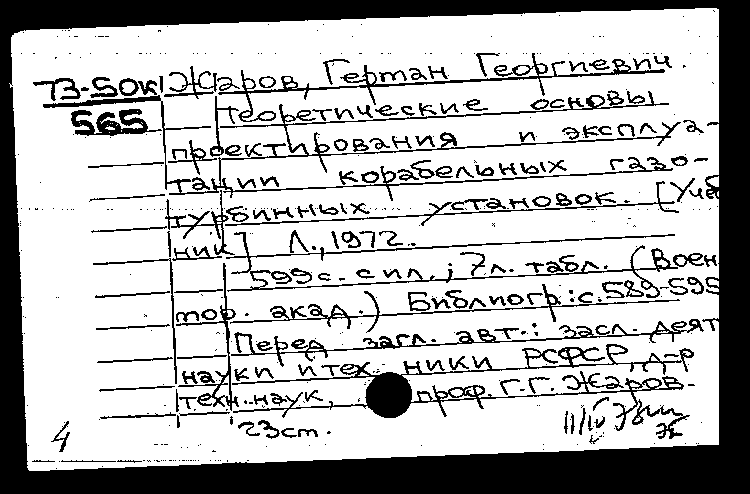 73-50к Жаров, Герман Георгиевич.
565 Теоретические основы
проектирования и эксплуа-
тации корабельных газо-
турбинных установок. [Учеб
ник] Л., 1972.
599 с. с ил.; 7 л. табл. (Воен.
мор. акад.) Библиогр.: с. 589-595
Перед загл. авт.: засл. деят
науки и тех ники РСФСР, д-р
техн. наук, проф. Г. Г. Жаров.
23 см.
4